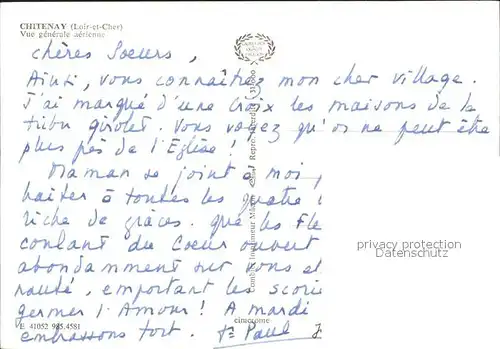 CHITENAY (Loir-et-Cher)
Vue générale aérienne
Chères Soeurs,
Ainsi, vous connaîtrez mon cher village.
J'ai marqué d'une croix les maisons de la
tribu Girolet. Vous voyez qu'on ne peut être
plus près de l'Eglise!
Maman se joint à moi,
haiter à toutes les quatre
riche de grâces. que les Fle
coulant du Coeur ouvert
abondamment sur vous et
nauté, emportant les scori
germer l'Amour! A mardi
embrassons fort. Fr Paul
privacy protection
Datenschutz
Combier Imprimeur Mâcon
cimcrome
E 41052 985.4581